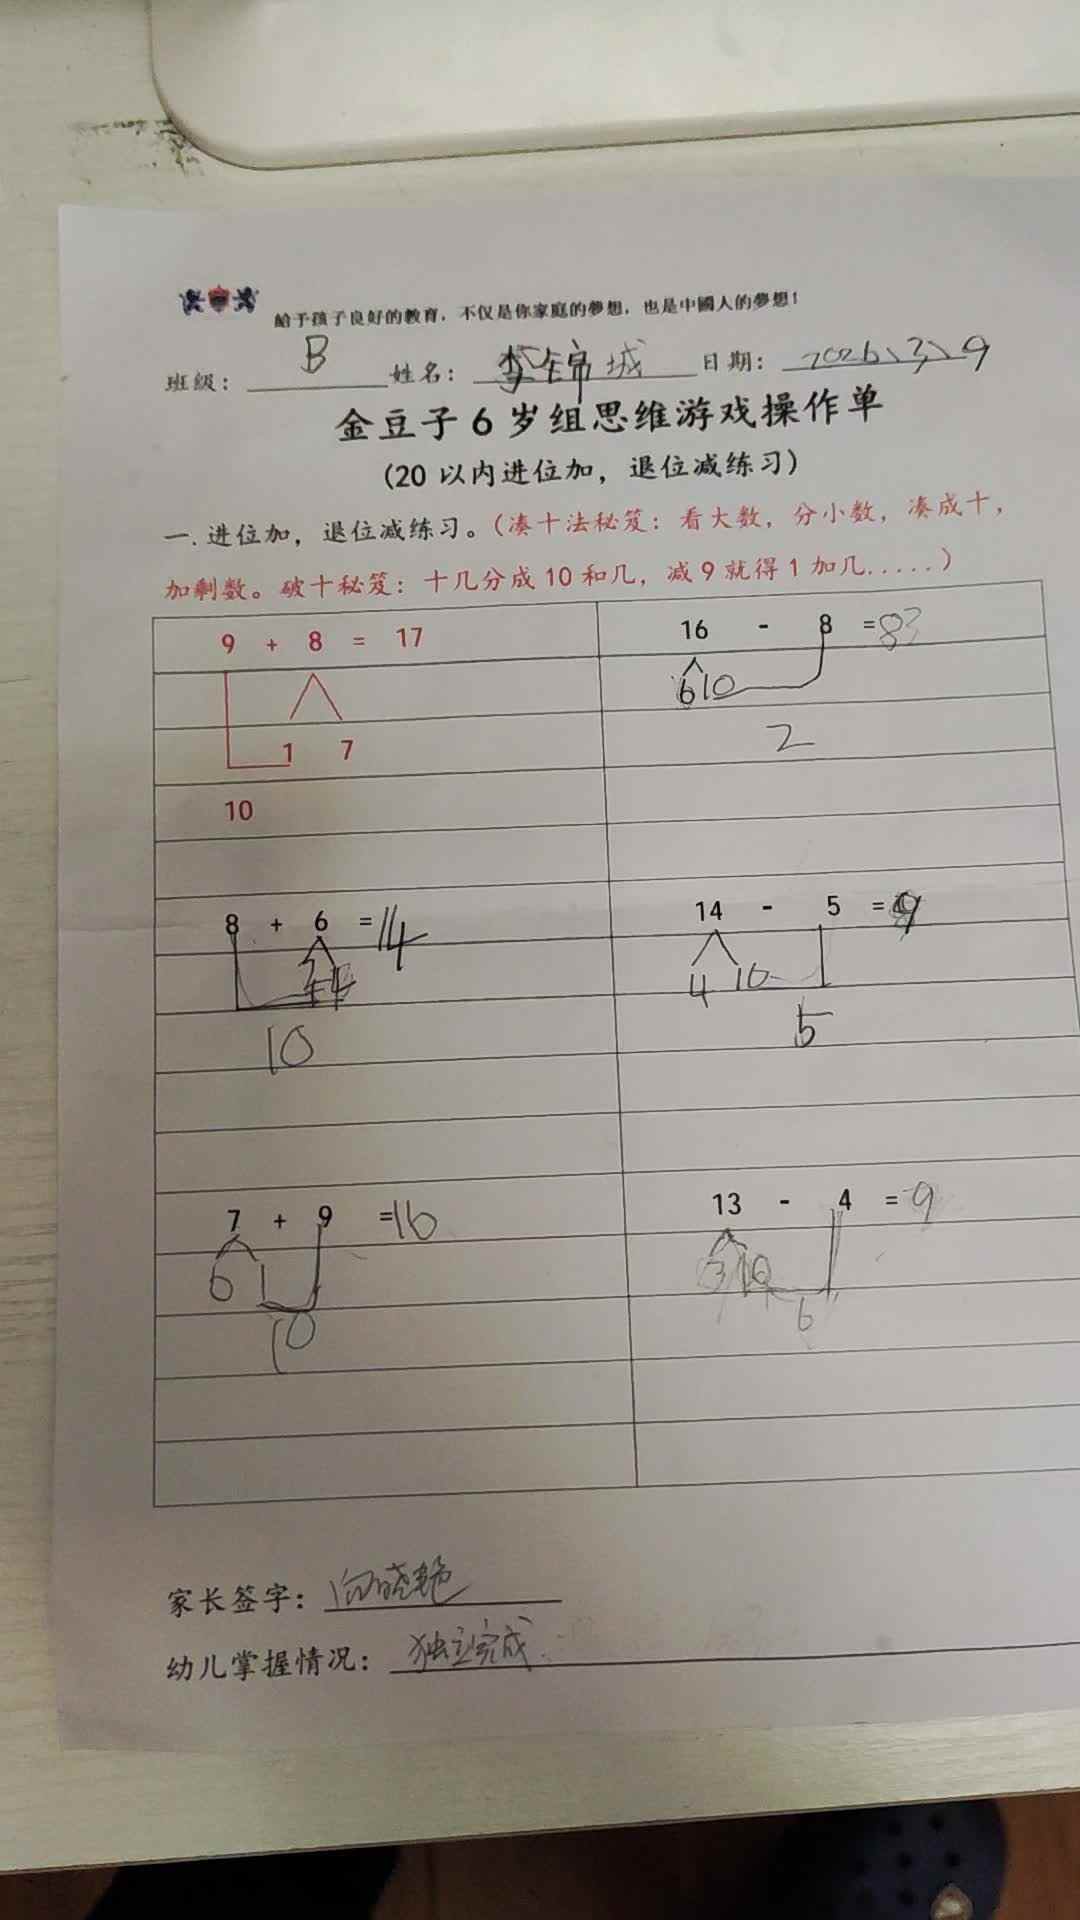 給予孩子良好的教育，不仅是你家庭的夢想，也是中國人的夢想！
班級： B 姓名： 李锦城 日期： 2026、3、9
金豆子 6 岁组思维游戏操作单
(20 以内进位加，退位减练习)
一. 进位加，退位减练习。(凑十法秘笈：看大数，分小数，凑成十，
加剩数。破十秘笈：十几分成 10 和几，减 9 就得 1 加几.....)
9 + 8 = 17
1 7
10
16 - 8 =8
6 10
2
8 + 6 =14
2 4
10
14 - 5 =9
4 10
5
7 + 9 =16
6 1
10
13 - 4 =9
3 10
6
家长签字： 向晓艳
幼儿掌握情况： 独立完成.